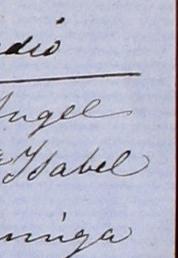 dio
Angel
Isabel
uniga